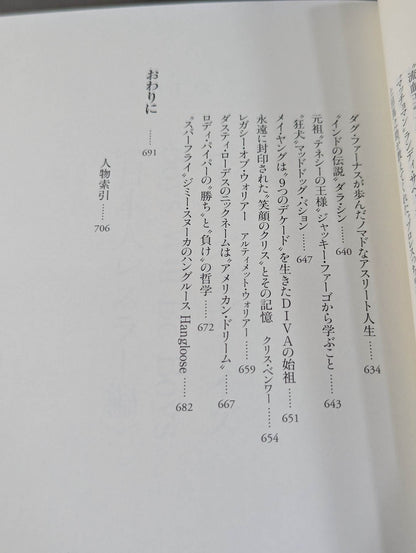 ダグ・ファーナスが歩んだノマドなアスリート人生……634
"インドの伝説"ダラ・シン……640
元祖"テネシーの王様"ジャッキー・ファーゴから学ぶこと……643
"狂犬"マッドドッグ・バション……647
メイ・ヤングは"9つのデケード"を生きたDIVAの始祖……651
永遠に封印された"笑顔のクリス"とその記憶　クリス・ベンワー……654
レガシー・オブ・ウォリアー　アルティメット・ウォリアー……659
ダスティ・ローデスのニックネームは"アメリカン・ドリーム"……667
ロディ・パイパーの"勝ち"と"負け"の哲学……672
"スーパーフライ"ジミー・スヌーカのハングルース Hangloose……682
おわりに……691
人物索引……706